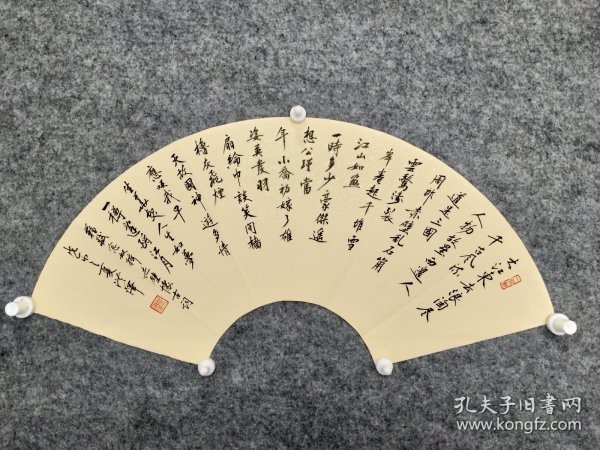 大江東去浪淘尽
千古風流
人物故壘西邊人
道是三國
周郎赤壁亂石崩
雲驚濤裂
岸卷起千堆雪
江山如畫
一時多少豪傑遥
想公瑾當
年小喬初嫁了雄
姿英發羽
扇綸巾談笑間檣
櫓灰飛煙
滅故國神遊多情
應笑我早
生華髮人生如夢
一樽還酹江月
蘇軾念奴嬌赤壁懷古詞
孔夫子旧書网
www.kongfz.com